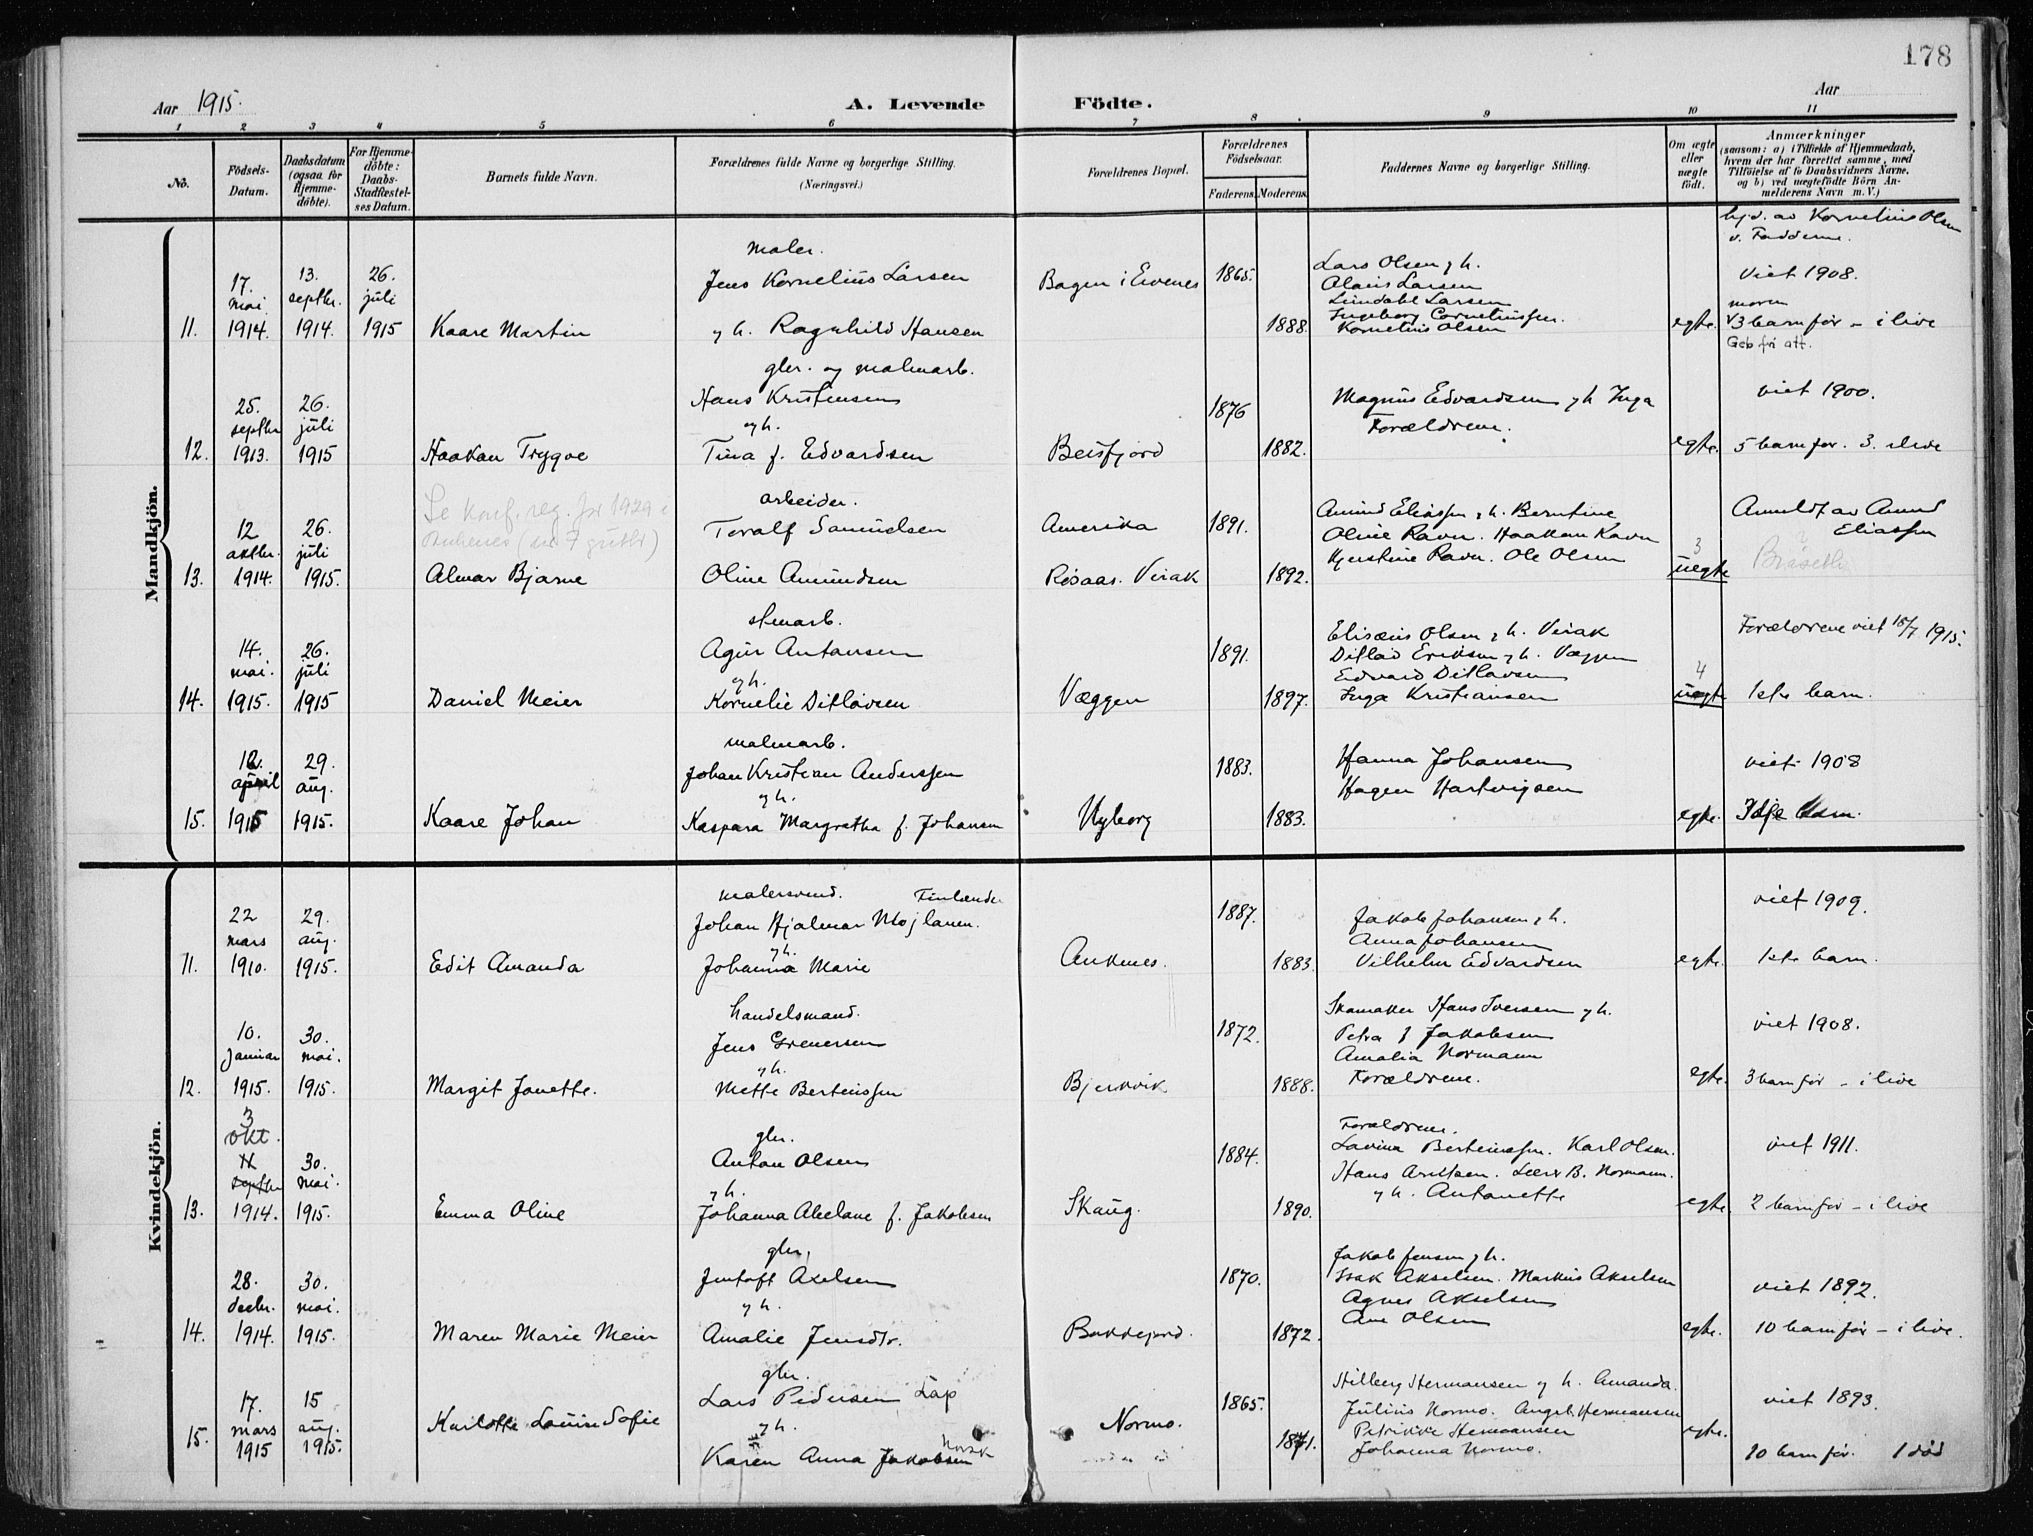 178
Aar 1915.
A. Levende Födte.
Aar
1 2 3 4 5 6 7 8 9 10 11
No.
Födsels-Datum.
Daabsdatum (ogsaa for Hjemme-döbte).
For Hjemme-döbte: Daabs-Stadfæstel-ses Datum.
Barnets fulde Navn.
Forældrenes fulde Navne og borgerlige Stilling.
(Næringsvei.)
Forældrenes Bopæl.
Forældrenes Födselsaar.
Faderens. Moderens.
Faddernes Navne og borgerlige Stilling.
Om ægte eller uægte födt.
Anmærkninger
(saasom: a) i Tilfælde af Hjemmedaab, hvem der har forrettet samme, med Tilföielse af to Daabsvidners Navne, og b) ved uægtefödte Börn An-melderens Navn m. V.)
Mandkjön.
hjd. av Kornelius Olsen
v. Fadderne.
maler.
17. mai 1914.
13. septbr. 1914.
26. juli 1915
11.
Kaare Martin
Jens Kornelius Larsen
y h. Ragnhild Hansen
Bogen i Evenes
1865.
1888.
Lars Olsen y h.
Olais Larsen
Lindahl Larsen
Ingeborg Corneliussen.
Kornelius Olsen
egte.
Viet 1908.
moren
3 barn før - i live
Geb fri att.
gbr. og malmarb.
12.
25. septbr 1913.
26. juli 1915
Haakan Trygve
Hans Kristensen
y h.
Tina f. Edvardsen
Beisfjord
1876
1882.
Magnus Edvardsen y h Inga
Forældrene.
egte.
viet 1900.
5 barn før. 3. ilive
Se konf. reg. for 1929 i
Ankenes (nr 7 gutter)
arbeider.
13.
12 oktbr. 1914.
26. juli 1915.
Almar Bjarne
Toralf Samuelsen
Oline Amundsen
Amerika
Røsaas. Virak
1891.
1892.
Amund Eliassen y h. Berntine
Oline Ravn. Haakon Ravn
Kjerstine Ravn. Ole Olsen
3
uegte
Anmeldt av Amund
Eliassen
stenarb.
14.
14. mai. 1915.
26. juli 1915
Daniel Meier
Agur Antonsen
y h.
Kornelie Ditlavsen
Væggen
1891.
1897.
Elisæus Olsen y h. Virak
Ditlad Eriksen y h. Væggen
Edvard Ditlavsen
Inga Kristiansen
4
uegte
Forældrene viet 18/7 1915.
1ste barn.
malmarb.
15.
12. april 1915
29. aug. 1915.
Kaare Johan
Johan Kristian Anderssen
y h.
Kaspara Margretha f. Johansen
Nyborg
1883.
1883.
Hanna Johansen
Hagen Hartvigsen
egte.
viet 1908
3dje barn.
Kvindekjön.
malersvend. Finlænder
11.
22 mars 1910.
29. aug. 1915.
Edit Amanda
Johan Hjalmar Mojlanen.
y h.
Johanna Marie
Ankenes.
1887.
1883.
Jakob Johansen y h.
Anna Johansen
Vilhelm Edvardsen
egte.
viet 1909.
1ste barn.
handelsmand.
12.
10. januar 1915.
30. mai. 1915.
Margit Jonette.
Jens Grenersen
y h.
Mette Berteussen
Bjerkvik
1872.
1888.
Skomaker Hans Iversen y h.
Petra f Jakobsen
Amalia Normann
Forældrene.
egte.
viet 1908.
3 barn før - i live
gbr.
13.
3 okt.
11 septbr 1914.
30. mai. 1915.
Emma Oline
Anton Olsen
y h.
Johanna Abelone f. Jakobsen
Skaug.
1884.
1890.
Forældrene.
Lavina Berteussen. Karl Olsen.
Hans Arntsen. Leer B. Normann.
y h. Antonette
egte.
viet 1911.
2 barn før - i live
gbr.
14.
28. decbr. 1914.
30. mai. 1915.
Maren Marie Meier
Jentoft Axelsen
y h.
Amalie Jensdtr.
Bakkejord.
1870.
1872.
Jakob Jensen y h.
Isak Akselsen. Markus Akselsen
Agnes Akselsen
Ane Olsen
egte.
viet 1892.
10 barn før - i live.
gbr.
15.
17. mars 1915
15 aug. 1915.
Karlotte Louise Sofie
Lars Pedersen Lap
y h.
Karen Anna Jakobsen Norsk
Normo.
1865.
1871.
Hilberg Hermansen y h. Amanda.
Julius Normo. Angel. Hermansen
Petrikke Hermansen
Johanna Normo.
egte.
viet 1893.
10 barn før. 1 død